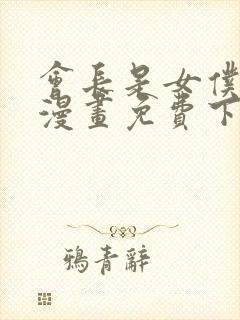 會長是女僕
漫畫免費下
鴉青辭